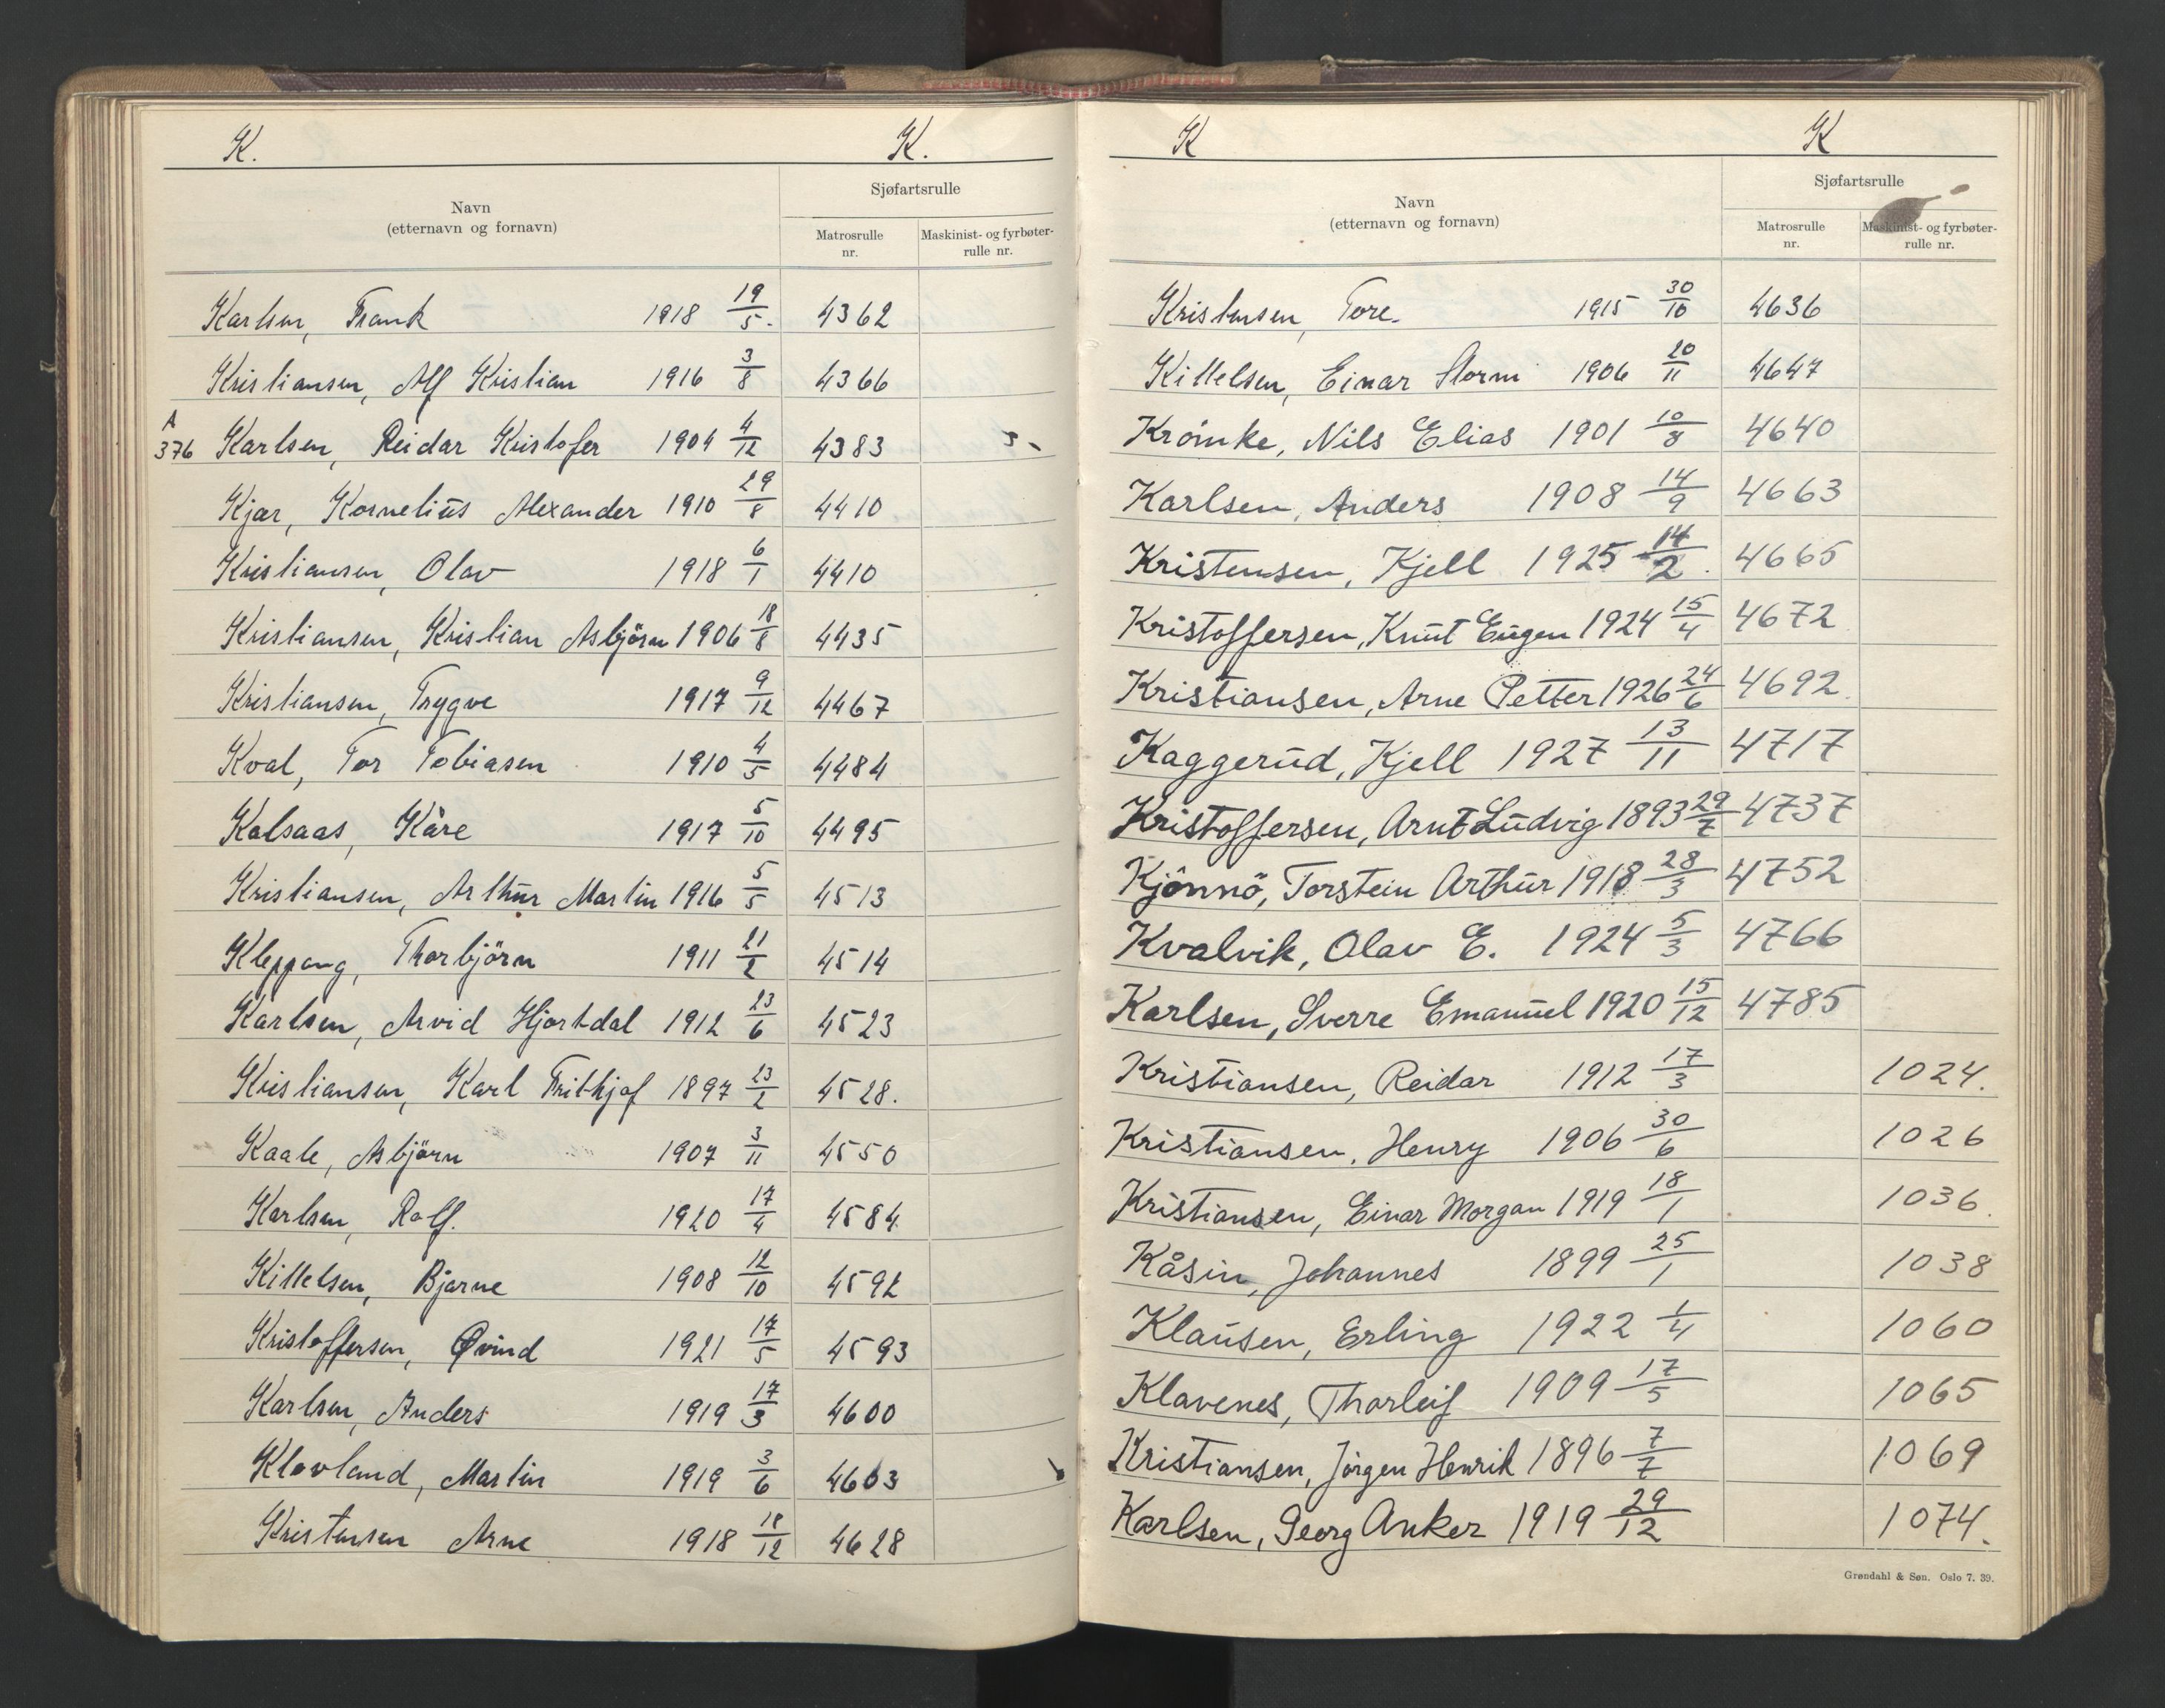 K. K.
Navn
(etternavn og fornavn)
Sjøfartsrulle
Matrosrulle
nr.
Maskinist- og fyrbøter-
rulle nr.
Karlsen, Frank 1918 19/5. 4362
Kristiansen, Alf Kristian 1916 3/8 4366
A
376 Karlsen, Reidar Kristofer 1904 4/12 4383
Kjær, Kornelius Alexander 1910 29/8 4410
Kristiansen, Olav 1918 6/1 4410
Kristiansen, Kristian Asbjörn 1906 18/8 4435
Kristiansen, Trygve 1917 9/12 4467
Kval, Tor Tobiasen 1910 4/5 4484
Kolsaas, Kåre 1917 5/10 4495
Kristiansen, Arthur Martin 1916 5/5 4513
Kleppang, Thorbjörn 1911 21/2 4514
Karlsen, Arvid Hjortdal 1912 23/6 4523
Kristiansen, Karl Frithjof 1897 23/2 4528.
Kaale, Asbjörn 1907 3/11 4550
Karlsen, Rolf. 1920 17/4 4584
Kittelsen, Bjarne 1908 12/10 4592
Kristoffersen, Øvind 1921 17/5 4593
Karlsen, Anders 1919 17/3 4600
Klovland, Martin 1919 3/6 4603
Kristensen Arne 1918 18/12 4628
K K
Navn
(etternavn og fornavn)
Sjøfartsrulle
Matrosrulle
nr.
Maskinist- og fyrbøter-
rulle nr.
Kristensen, Tore. 1915 30/10 4636
Kittelsen, Einar Storm 1906 20/11 4647
Krömke, Nils Elias 1901 10/8 4640
Karlsen, Anders 1908 14/9 4663
Kristensen, Kjell 1925 14/2. 4665
Kristoffersen, Knut Eugen 1924 15/4 4672
Kristiansen, Arne Petter 1926 24/6 4692
Kaggerud, Kjell 1927 13/11 4717
Kristoffersen, Arnt Ludvig 1893 29/7 4737
Kjönnö, Torstein Arthur 1918 28/3 4752
Kvalvik, Olav E. 1924 5/3 4766
Karlsen, Sverre Emanuel 1920 15/12 4785
Kristiansen, Reidar 1912 17/3 1024.
Kristiansen, Henry 1906 30/6 1026
Kristiansen, Einar Morgan 1919 18/1 1036.
Kåsin, Johannes 1899 25/1 1038
Klausen, Erling 1922 1/4 1060
Klavenes, Thorleif 1909 17/5 1065
Kristiansen, Jörgen Henrik 1896 7/7 1069
Karlsen, Georg Anker 1919 29/12 1074.
Grøndahl & Søn. Oslo 7. 39.